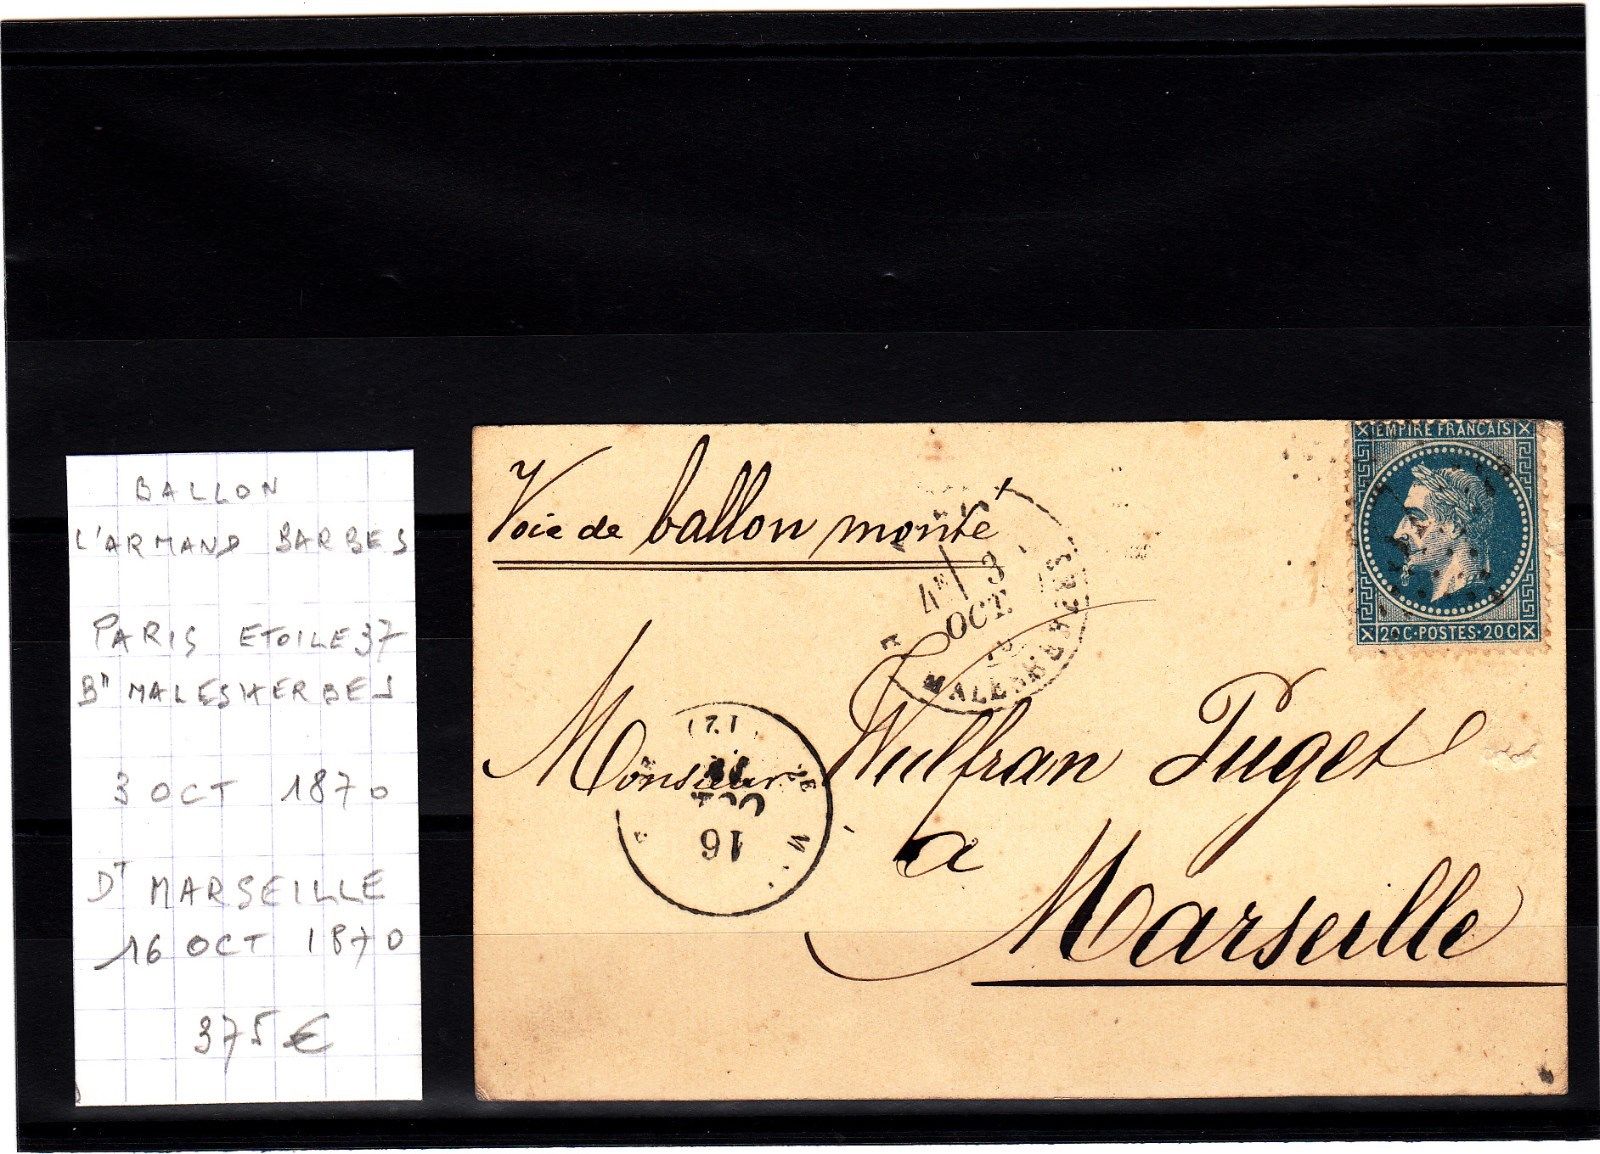 BALLON
L'ARMAND BARBES
PARIS ETOILE 37
Bd MALESHERBES
3 OCT 1870
DT MARSEILLE
16 OCT 1870
375 €
Voie de ballon monté
EMPIRE FRANCAIS
20 C·POSTES·20 C
4E 3
OCT
MALESHERBES
Monsieur Wulfran Puget
a
Marseille
(12)
OCT
16